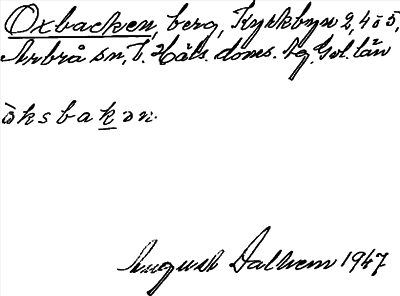 Oxbacken, berg, Kyrkbyn 2, 4 o 5,
Arbrå sn, V. Häls. doms. tg, Gvl. län
öksbakən.
August Dalhem 1947